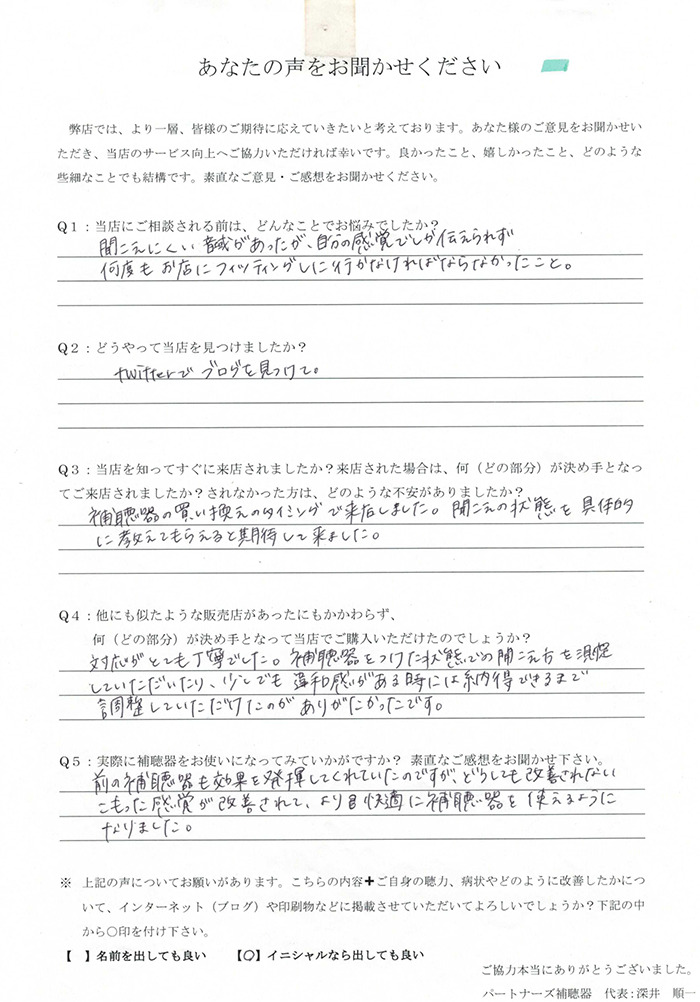 あなたの声をお聞かせください
弊店では、より一層、皆様のご期待に応えていきたいと考えております。あなた様のご意見をお聞かせい
ただき、当店のサービス向上へご協力いただければ幸いです。良かったこと、嬉しかったこと、どのような
些細なことでも結構です。素直なご意見・ご感想をお聞かせください。
Q1：当店にご相談される前は、どんなことでお悩みでしたか？
聞こえにくい音域があったが、自分の感覚でしか伝えられず
何度もお店にフィッティングしに行かなければならなかったこと。
Q2：どうやって当店を見つけましたか？
twitterでブログを見つけて。
Q3：当店を知ってすぐに来店されましたか？来店された場合は、何（どの部分）が決め手となっ
てご来店されましたか？されなかった方は、どのような不安がありましたか？
補聴器の買い換えのタイミングで来店しました。聞こえの状態を具体的
に教えてもらえると期待して来ました。
Q4：他にも似たような販売店があったにもかかわらず、
何（どの部分）が決め手となって当店でご購入いただけたのでしょうか？
対応がとても丁寧でした。補聴器をつけた状態での聞こえ方を測定
していただいたり、少しでも違和感がある時には納得できるまで
調整していただけたのがありがたかったです。
Q5：実際に補聴器をお使いになってみていかがですか？ 素直なご感想をお聞かせ下さい。
前の補聴器も効果を発揮してくれていたのですが、どうしても改善されない
こもった感覚が改善されて、より快適に補聴器を使えるように
なりました。
※ 上記の声についてお願いがあります。こちらの内容＋ご自身の聴力、病状やどのように改善したかにつ
いて、インターネット（ブログ）や印刷物などに掲載させていただいてよろしいでしょうか？下記の中
から〇印を付け下さい。
【 】名前を出しても良い 【〇】イニシャルなら出しても良い
ご協力本当にありがとうございました。
パートナーズ補聴器 代表：深井 順一